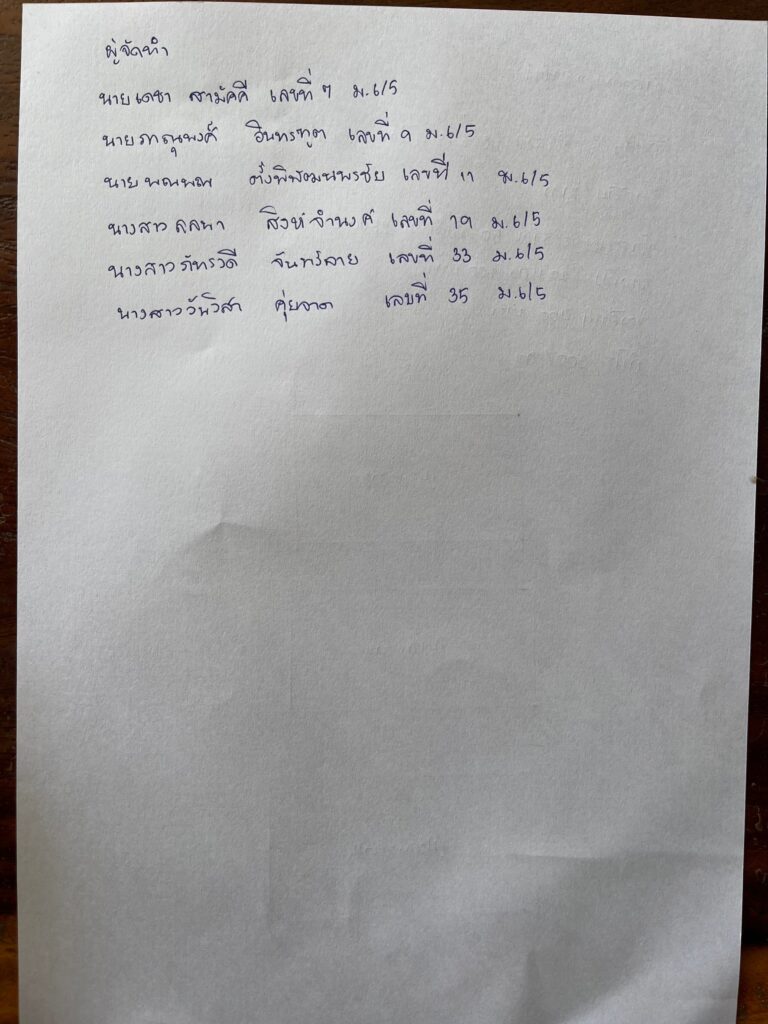 ผู้จัดทำ
นายเดชา สามัคคี เลขที่ 7 ม.6/5
นายภาณุพงศ์ อินทรทูต เลขที่ 9 ม.6/5
นายพณพณ ตั้งพิพัฒนพรชัย เลขที่ 11 ม.6/5
นางสาวลลนา สิงห์จำนงค์ เลขที่ 19 ม.6/5
นางสาวภัทรวดี จันทร์ลาย เลขที่ 33 ม.6/5
นางสาววันวิสา เลขที่ 35 ม.6/5